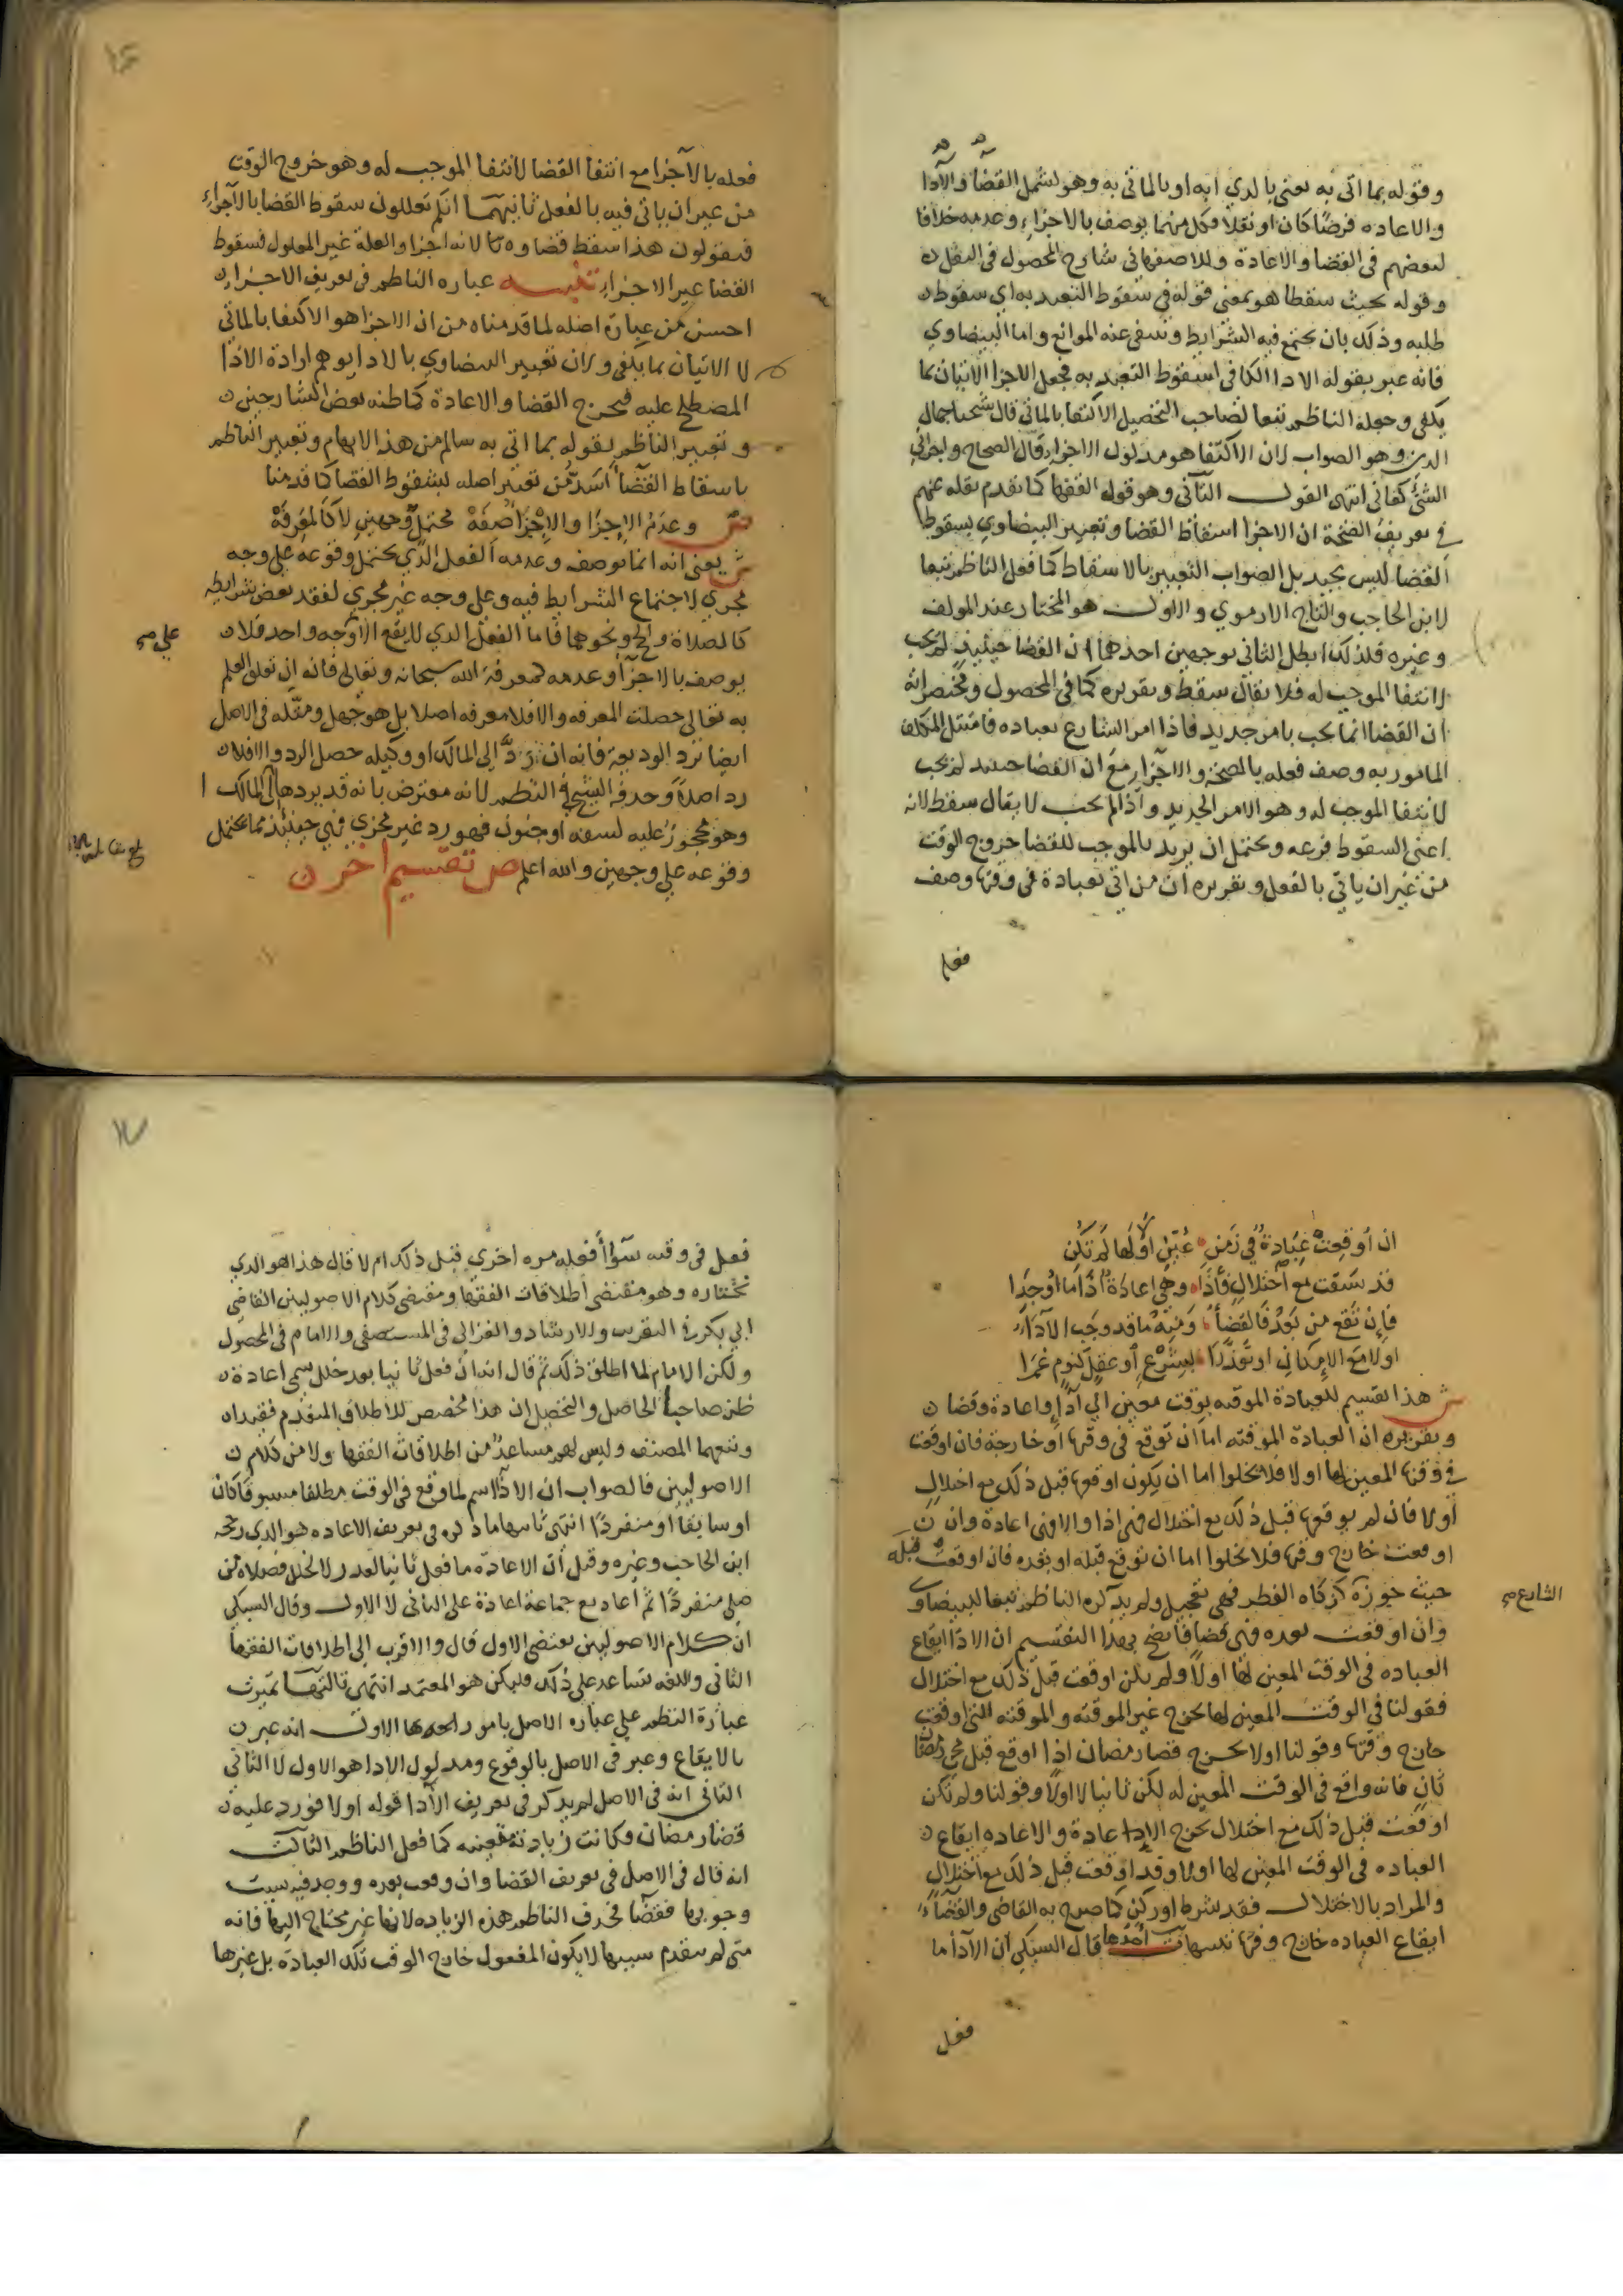 وقوله بما اتى به يعنى بالدي اتى به او بالماتي به وهو يشمل القضا والادا
والاعاده فرضًا كان او نفلا فكل منهما يوصف بالاجزاء وعدمه خلافا
لبعضهم في القضا والاعادة وللاصفهاني شارح المحصول في النفل
وقوله بحيث سقطا هو بمعنى قوله في سقوط التعبد به اي سقوط
طلبه وذلك بان تجتمع فيه الشرايط وتنتفي عنه الموانع واما البيضاوي
فانه عبر بقوله الادا الكافي لسقوط التعبد به فجعل الاجزا الاتيان بما
يكفي وجعله الناظم تبعا لصاحب التحصيل الاكتفا بالماتي قال شيخنا جمال
الدين وهو الصواب لان الاكتفا هو مدلول الاجزا قال في الصحاح واجزاني
الشئ كفاني انتهى القول الثاني وهو قول الفقها كما تقدم نقله عنهم
في تعريف الصحة ان الاجزا اسقاط القضا وتعبير البيضاوي بسقوط
القضا ليس بجيد بل الصواب التعبير بالاسقاط كما فعل الناظم تبعا
لابن الحاجب والتاج الارموي والاول هو المختار عند المولف
وغيره فلذلك ابطل الثاني بوجهين احدهما ان القضا حينيذ لم يجب
لانتفا الموجب له فلا يقال سقط وتقريره كما في المحصول ومختصراته
ان القضا انما يجب بامر جديد فاذا امر الشارع بعباده فامتثل المكلف
المامور به وصف فعله بالصحة والاجزا مع ان القضا حينيد لم يجب
لانتفا الموجب له وهو الامر الجديد واذا لم يجب لا يقال سقط لانه
اعنى السقوط فرعه ويحتمل ان يريد بالموجب للقضا خروج الوقت
من غير ان ياتي بالفعل وتقريره ان من اتى بعبادة في وقتها وصف
فعله
فعله بالاجزا مع انتفا القضا لانتفا الموجب له وهو خروج الوقت
من غير ان ياتي فيه بالفعل ثانيهما انكم تعللون سقوط القضا بالاجزاء
فتقولون هذا سقط قضاوه لانه اجزا والعلة غير المعلول فسقوط
القضا غير الاجزاء تنبيه عباره الناظم في تعريف الاجزاء
احسن من عبارة اصله لما قدمناه من ان الاجزا هو الاكتفا بالماتي
لا الاتيان بما يكفي ولان تعبير البيضاوي بالادا يوهم ارادة الادا
المصطلح عليه فيخرج القضا والاعادة كما ظنه بعض الشارحين
وتعبير الناظم بقوله بما اتى به سالم من هذا الايهام وتعبير الناظم
باسقاط القضا اسد من تعبير اصله بسقوط القضا كما قدمنا
ص وعدم الاجزا والاجزا صفة محتمل وجهين لا كالمعرفة
ش يعني انه انما يوصف وعدمه الفعل الذي يحتمل وقوعه على وجه
مجزي لاجتماع الشرايط فيه وعلى وجه غير مجزي لفقد بعض شرايطه
كالصلاة والحج ونحوهما فاما الفعل الدي لا يقع الا وجه واحد فلا
على صح
يوصف بالاجزا وعدمه كمعرفة الله سبحانه وتعالى فانه ان تعلق العلم
به تعالى حصلت المعرفه والا فلا معرفه اصلا بل هو جهل ومثله في الاصل
ايضا برد الوديعة فانه ان رد الى المالك او وكيله حصل الرد والا فلا
رد اصلا وحدفه الشيخ في النظم لانه معترض بانه قد يردها الى المالك
وهو محجور عليه لسفه او جنون فهو رد غير مجزي فهي حينيذ مما يحتمل
وقوعه على وجهين والله اعلم ص تقسيم اخر
ان اوقعت عبادة في زمن عين اولا لها لم تكن
قد سبقت مع اختلال فادا وهي اعادة اذا ما وجدا
فان تقع من بعد فالقضا وفيه ما قد وجب الادا
اولا مع الامكان او تعذرا بشرع او عقل كنوم غمرا
ش هذا تقسيم للعبادة الموقته بوقت معين الى ادا واعادة وقضا
وتقريره ان العبادة الموقته اما ان توقع في وقتها او خارجه فان اوقعت
في وقتها المعين لها اولا فلا يخلوا اما ان يكون اوقعها قبل ذلك مع اختلال
اولا فان لم يوقعها قبل ذلك مع اختلال فهي ادا والا فهي اعادة وان
اوقعت خارج وقتها فلا تخلوا اما ان توقع قبله او بعده فان اوقعت قبله
حيث جوزه كزكاه الفطر فهي تعجيل ولم يذكره الناظم تبعا للبيضاوي
الشارع صح
وان اوقعت بعده فهي قضا فاتضح بهذا التقسيم ان الادا ايقاع
العباده في الوقت المعين لها اولا ولم يكن اوقعت قبل ذلك مع اختلال
فقولنا في الوقت المعين لها يخرج غير الموقته والموقته التي اوقعت
خارج وقتها وقولنا اولا يخرج قضا رمضان اذا اوقع قبل مجي رمضان
ثان فانه واقع في الوقت المعين له لكن ثانيا لا اولا وقولنا ولم تكن
اوقعت قبل ذلك مع اختلال يخرج الاعادة والاعاده ايقاع
العباده في الوقت المعين لها اولا وقد اوقعت قبل ذلك مع اختلال
والمراد بالاختلال فقد شرط او ركن كما صرح به القاضي والقضاء
ايقاع العباده خارج وقتها تنبيهات احدها قال السبكي ان الادا ما
فعل
فعل في وقته سواء فعله مره اخري قبل ذلك ام لا قال هذا هو الدي
نختاره وهو مقتضى اطلاقات الفقها ومقتضى كلام الاصوليين القاضي
ابي بكر في التقريب والارشاد والغزالي في المستصفى والامام في المحصول
ولكن الامام لما اطلق ذلك ثم قال انه ان فعل ثانيا بعد خلل سمي اعادة
ظن صاحبا الحاصل والتحصيل ان هذا مخصص للاطلاق المتقدم فقيداه
وتبعهما المصنف وليس لهم مساعد من اطلاقات الفقها ولا من كلام
الاصوليين فالصواب ان الادا اسم لما وقع في الوقت مطلقا مسبوقا كان
او سابقا او منفردا انتهى ثانيها ما ذكره في تعريف الاعاده هو الدي رجحه
ابن الحاجب وغيره وقيل ان الاعادة ما فعل ثانيا لعدر لا لخلل فصلاة من
صلى منفردا ثم اعاد مع جماعة اعادة على الثاني لا الاول وقال السبكي
ان كلام الاصوليين يقتضي الاول قال والاقرب الى اطلاقات الفقها
الثاني واللغه تساعد على ذلك فليكن هو المعتمد انتهى ثالثها تميزت
عبارة النظم على عباره الاصل بامور احدها الاول انه عبر
بالايقاع وعبر في الاصل بالوقوع ومدلول الادا هو الاول لا الثاني
الثاني انه في الاصل لم يدكر في تعريف الادا قوله اولا فورد عليه
قضا رمضان وكانت زيادته متعينه كما فعل الناظم الثالث
انه قال في الاصل في تعريف القضا وان وقعت بعده ووجد فيه سبب
وجوبها فقضا فحدف الناظم هذه الزياده لانها غير محتاج اليها فانه
متى لم يتقدم سببها لا يكون المفعول خارج الوقت تلك العبادة بل غيرها